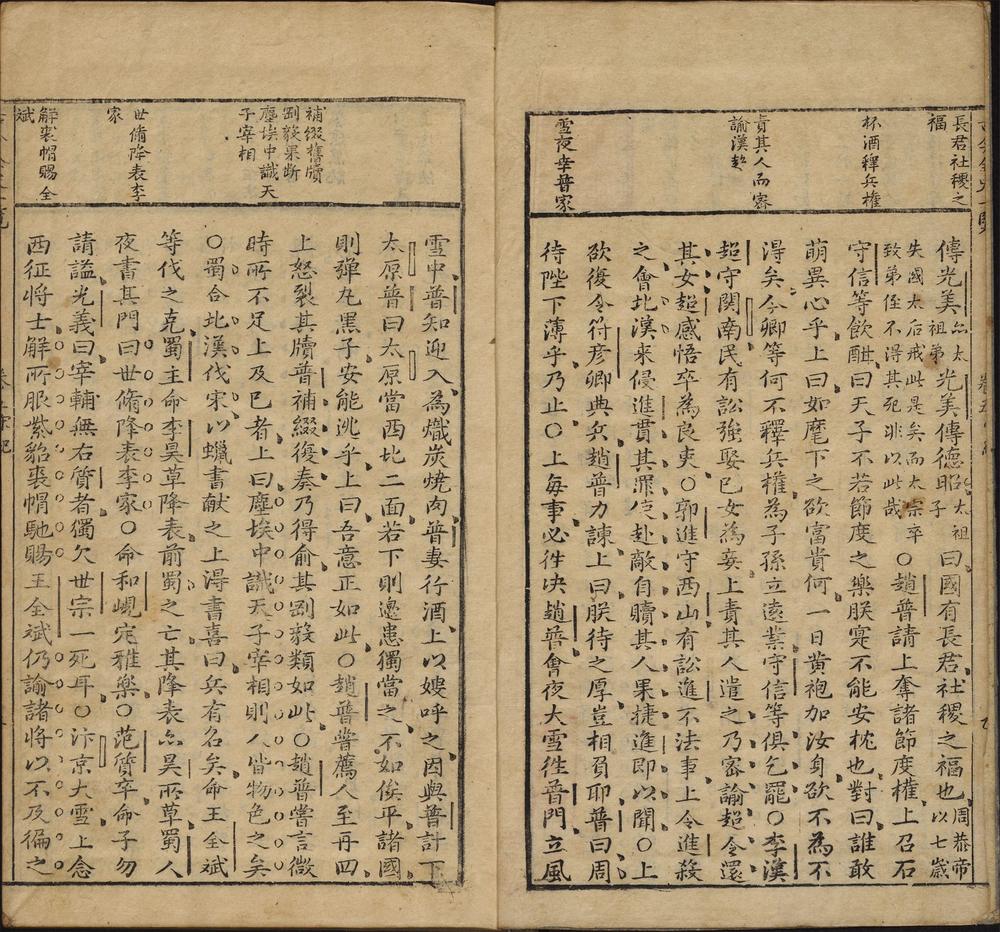 長君社稷之
福
杯酒釋兵權
責其人而密
諭漢超
雪夜幸普家
傳光美
亦太
祖弟
光美傳德昭
太祖
子
曰國有長君社稷之福也
周恭帝
以七歲
失國太后戒此是矣而太宗卒
致弟侄不得其死非以此哉
○趙普請上奪諸節度權上召石
守信等飲酣曰天子不若節度之樂朕寔不能安枕也對曰誰敢
萌異心乎上曰如麾下之欲富貴何一日黄袍加汝身欲不為不
得矣今卿等何不釋兵權為子孫立遠業守信等俱乞罷○李漢
超守関南民有訟強娶已女為妾上責其人遣之乃密諭超令還
其女超感悟卒為良吏○郭進守西山有訟進不法事上令進殺
之會北漢来侵進貰其罪使赴敵自贖其人果捷進即以聞○上
欲復令符彦卿典兵趙普力諫上曰朕待之厚豈相負耶普曰周
待陛下薄乎乃止○上每事必徃决趙普會夜大雪徃普門立風
補綴舊牘
剛毅果断
塵埃中識天
子宰相
世脩降表李
家
解裘帽賜全
斌
雪中普知迎入為熾炭燒肉普妻行酒上以嫂呼之因與普計下
太原普曰太原當西北二面若下則邉患獨當之不如俟平諸國
則弹丸黒子安能逃乎上曰吾意正如此○趙普嘗薦人至再四
上怒裂其牘普補綴復奏乃得俞其剛毅類如此○趙普嘗言微
時所不足上及已者上曰塵埃中識天子宰相則人皆物色之矣
○蜀合北漢伐宋以蠟書献之上淂書喜曰兵有名矣命王全斌
等伐之克蜀主命李昊草降表前蜀之亡其降表亦昊所草蜀人
夜書其門曰世脩降表李家○命和峴定雅樂○范質卒命子勿
請謚光義曰宰輔無右質者獨欠世宗一死耳○汴京大雪上念
西征將士解所服紫貂裘帽馳賜王全斌仍諭諸將以不及徧之